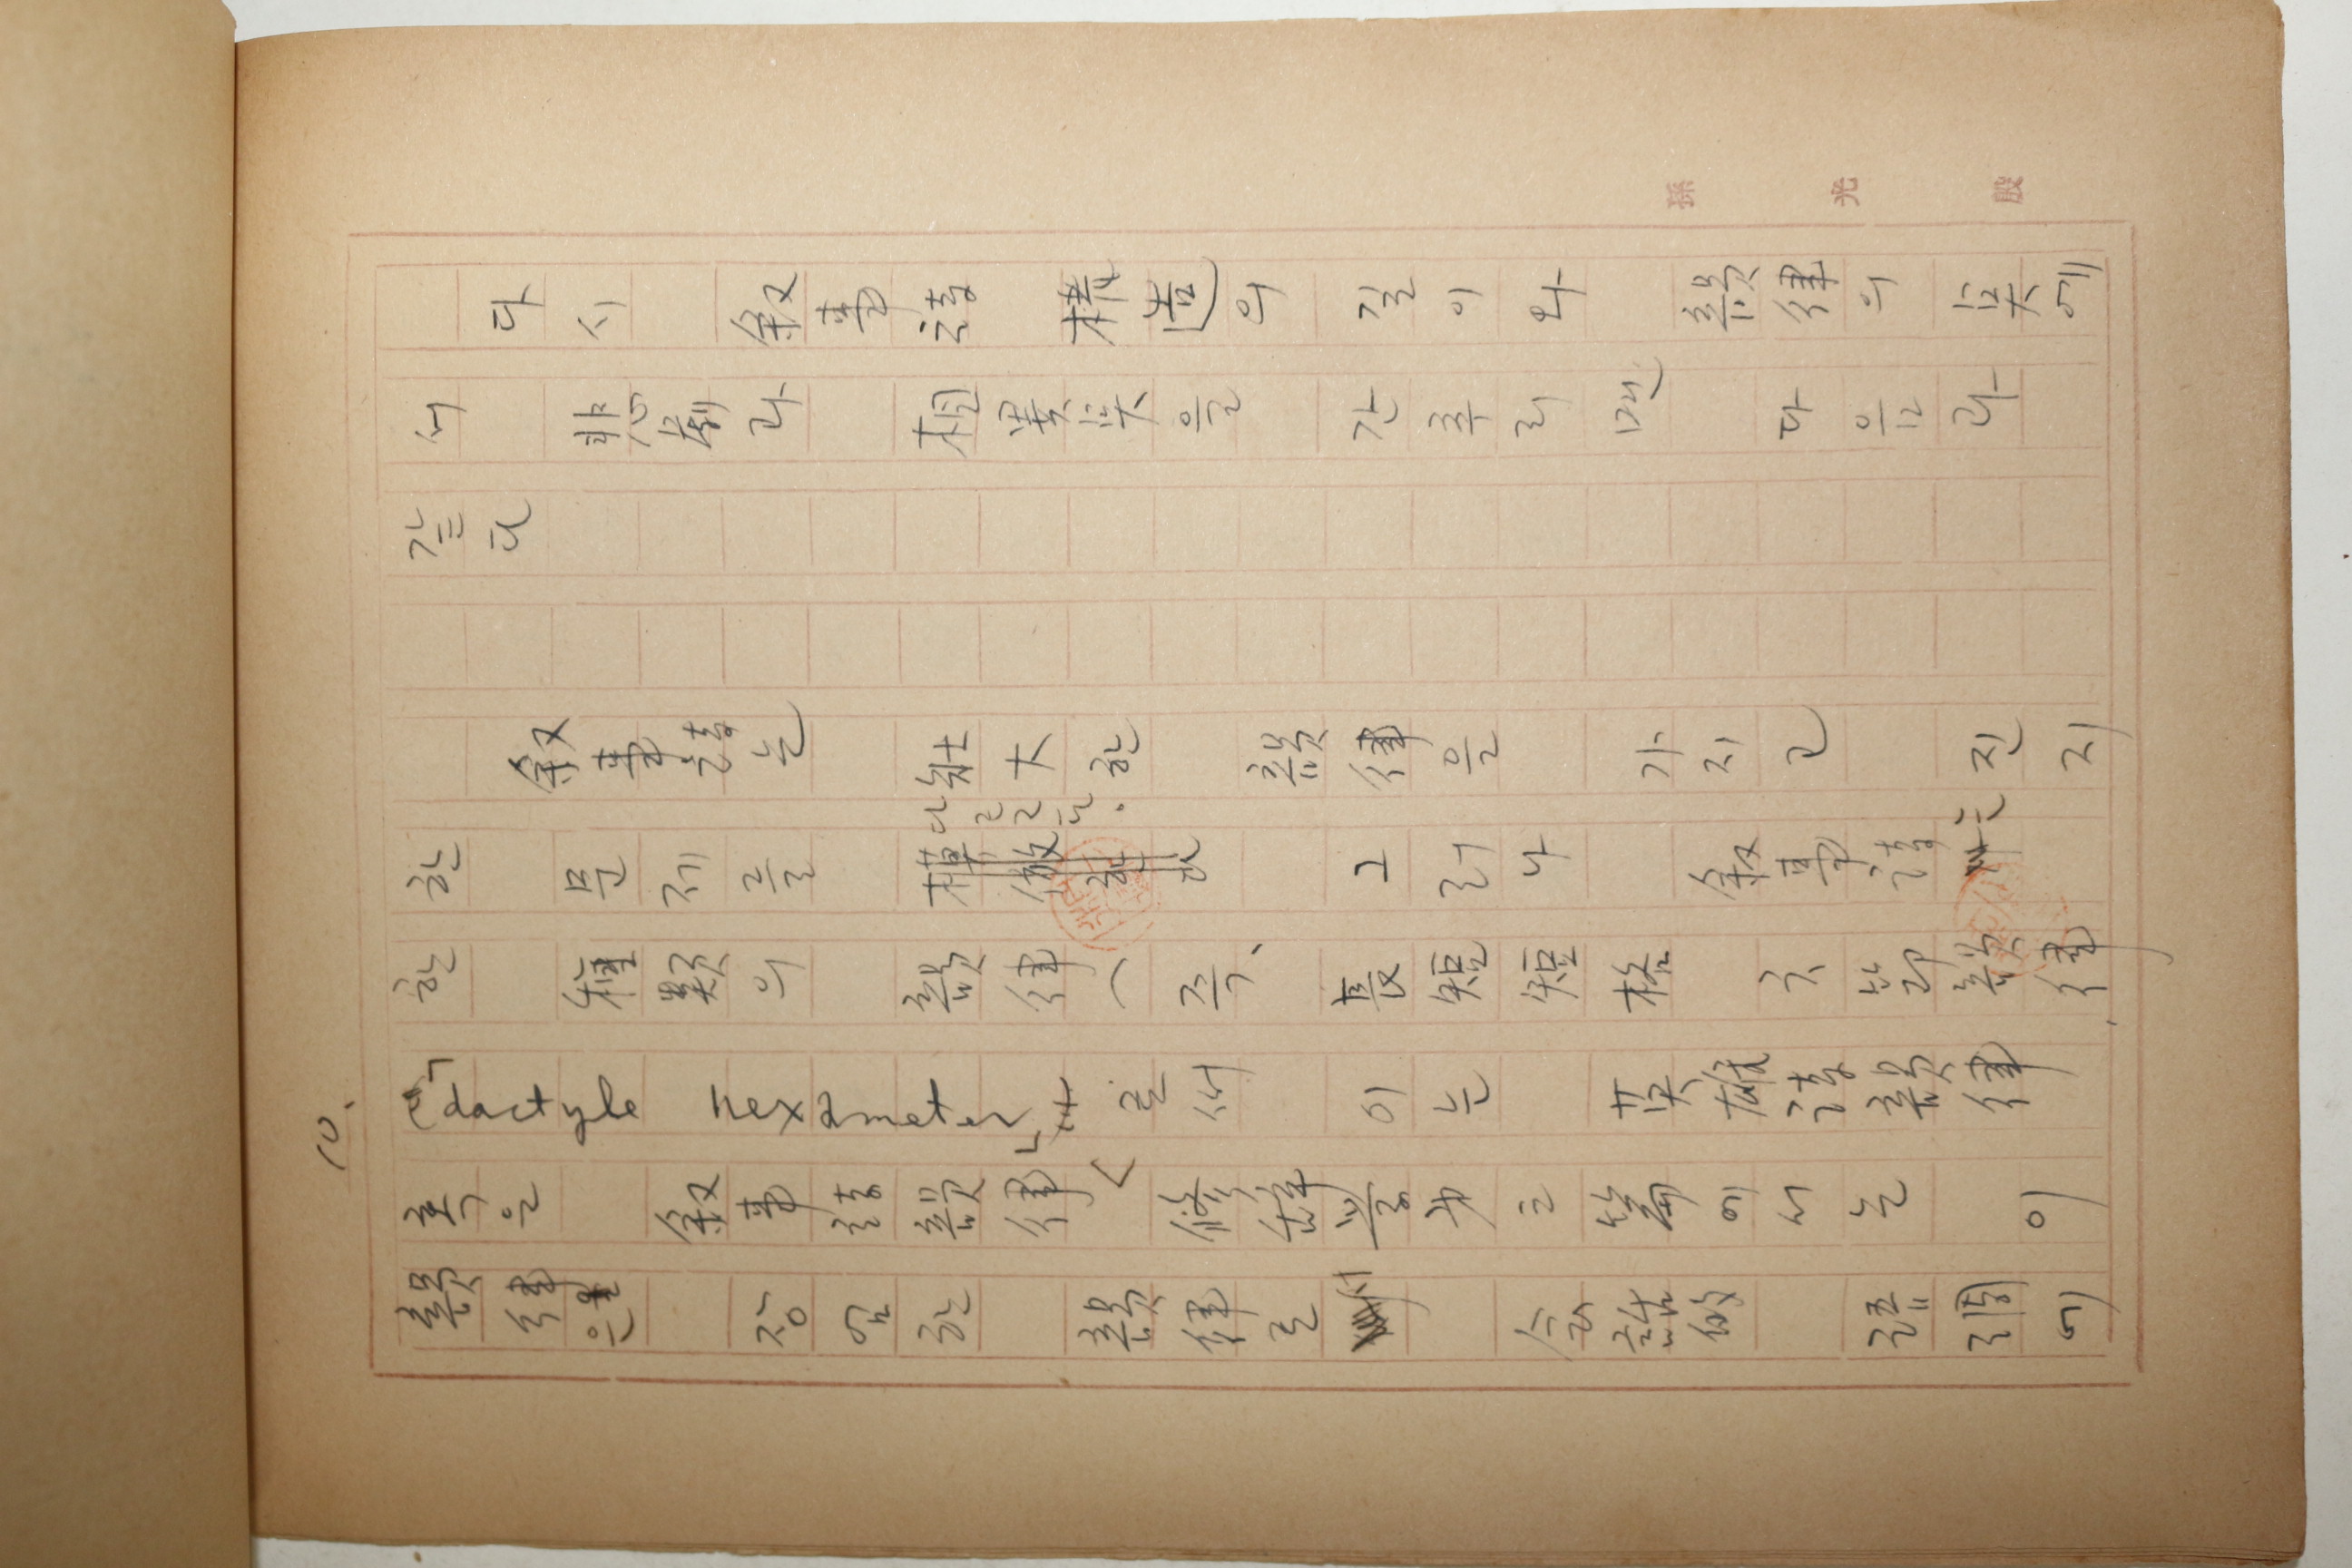 10.
다시 叙事詩 構造의 길이와 韻律의 点에
서 悲劇과 相異点을 간추리면 다음과
같다
叙事詩는 壯大한 韻律을 가지고 진지
한 문제를 다르른다. 그러나 叙事詩는
한 種類의 韻律(즉、長短短格 六節韻律,
「dactyle hexameter」로써 이는 英雄詩韻律
혹은 叙事詩韻律<修辞學 才三篇에서는 이
韻律은 장엄한 韻律로서 会話的 語調에
孫光殷